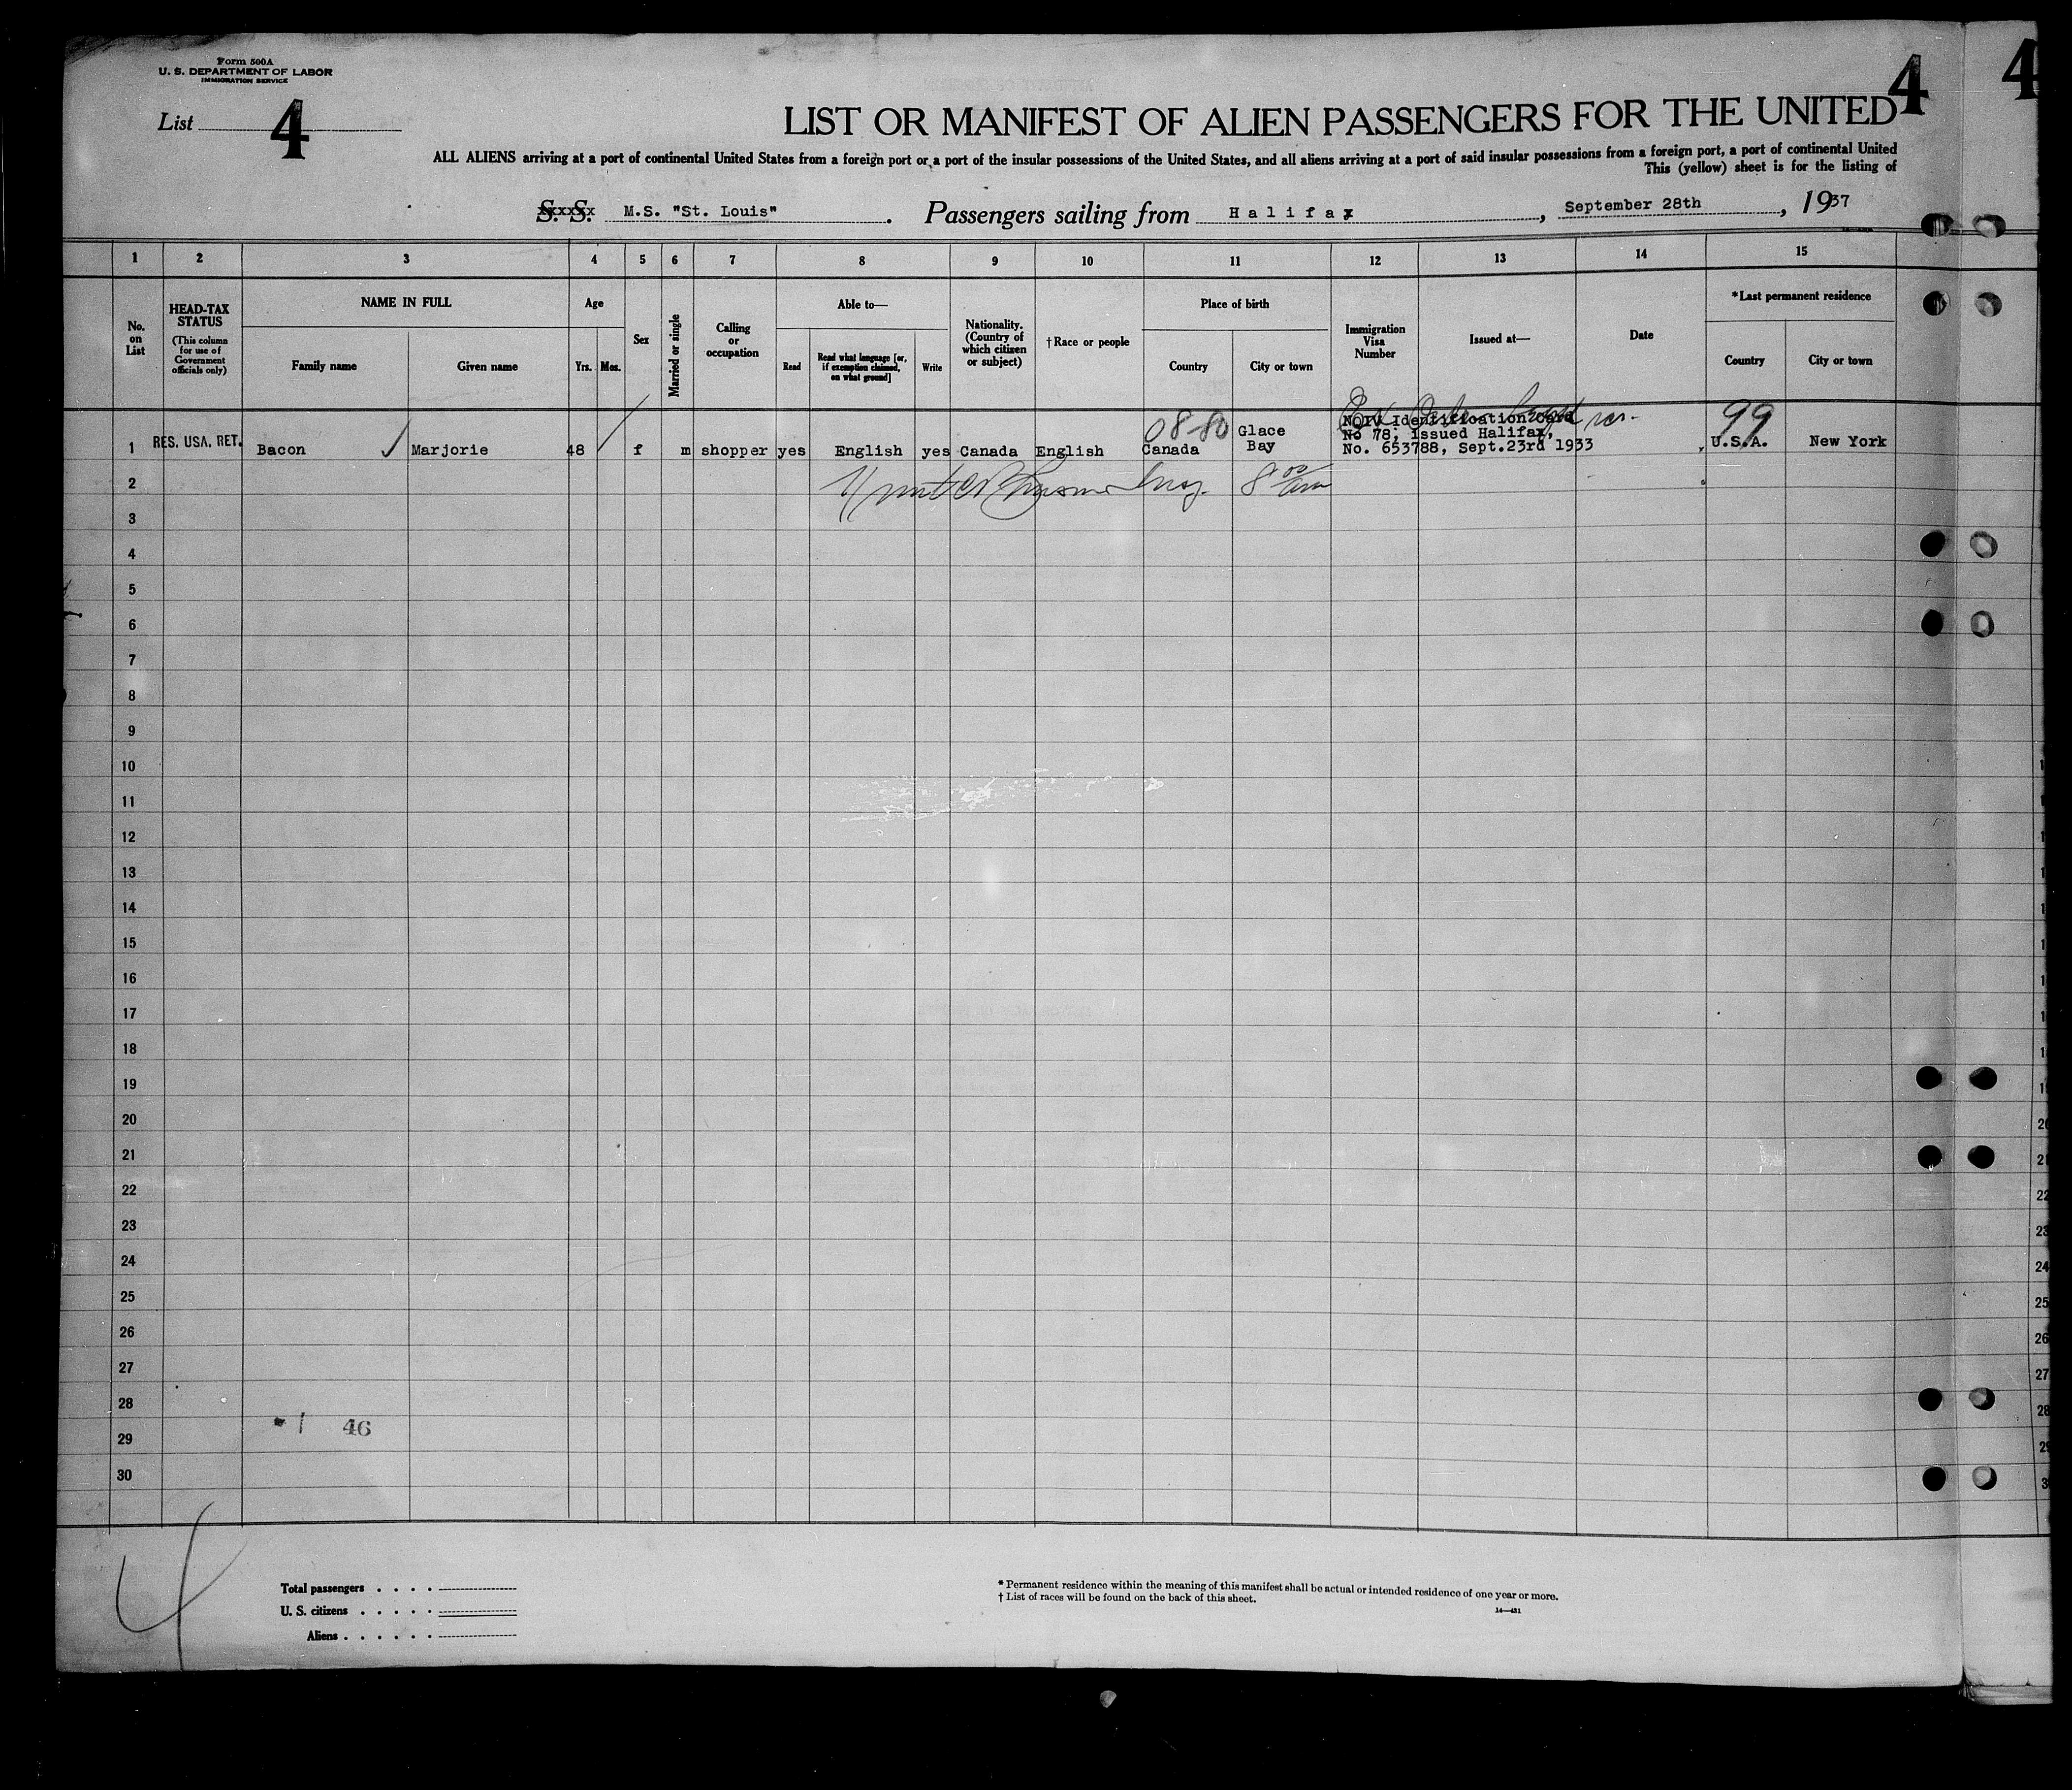 Form 500A
U. S. DEPARTMENT OF LABOR
IMMIGRATION SERVICE
List 4
4
4
LIST OR MANIFEST OF ALIEN PASSENGERS FOR THE UNITED
ALL ALIENS arriving at a port of continental United States from a foreign port or a port of the insular possessions of the United States, and all aliens arriving at a port of said insular possessions from a foreign port, a port of continental United
This (yellow) sheet is for the listing of
S. S. M.S. "St. Louis". Passengers sailing from Halifax, September 28th, 1937
1 2 3 4 5 6 7 8 9 10 11 12 13 14 15
No. on List
HEAD-TAX STATUS
(This column for use of Government officials only)
NAME IN FULL
Family name
Given name
Age
Yrs. Mos.
Sex
Married or single
Calling or occupation
Able to—
Read
Read what language [or, if exemption claimed, on what ground]
Write
Nationality. (Country of which citizen or subject)
† Race or people
Place of birth
Country
City or town
Immigration Visa Number
Issued at—
Date
*Last permanent residence
Country
City or town
08-80
99
NQIV Identification Card
No 78, issued Halifax,
No. 653788, Sept.23rd 1933
1 RES. USA. RET. Bacon Marjorie 48 f m shopper yes English yes Canada English Canada Glace Bay U.S.A. New York
2
3
4
5
6
7
8
9
10
11
12
13
14
15
16
17
18
19
20
21
22
23
24
25
26
27
28
29
30
46
4
Total passengers . . . .
U. S. citizens . . . . .
Aliens . . . . . .
* Permanent residence within the meaning of this manifest shall be actual or intended residence of one year or more.
† List of races will be found on the back of this sheet.
14—431